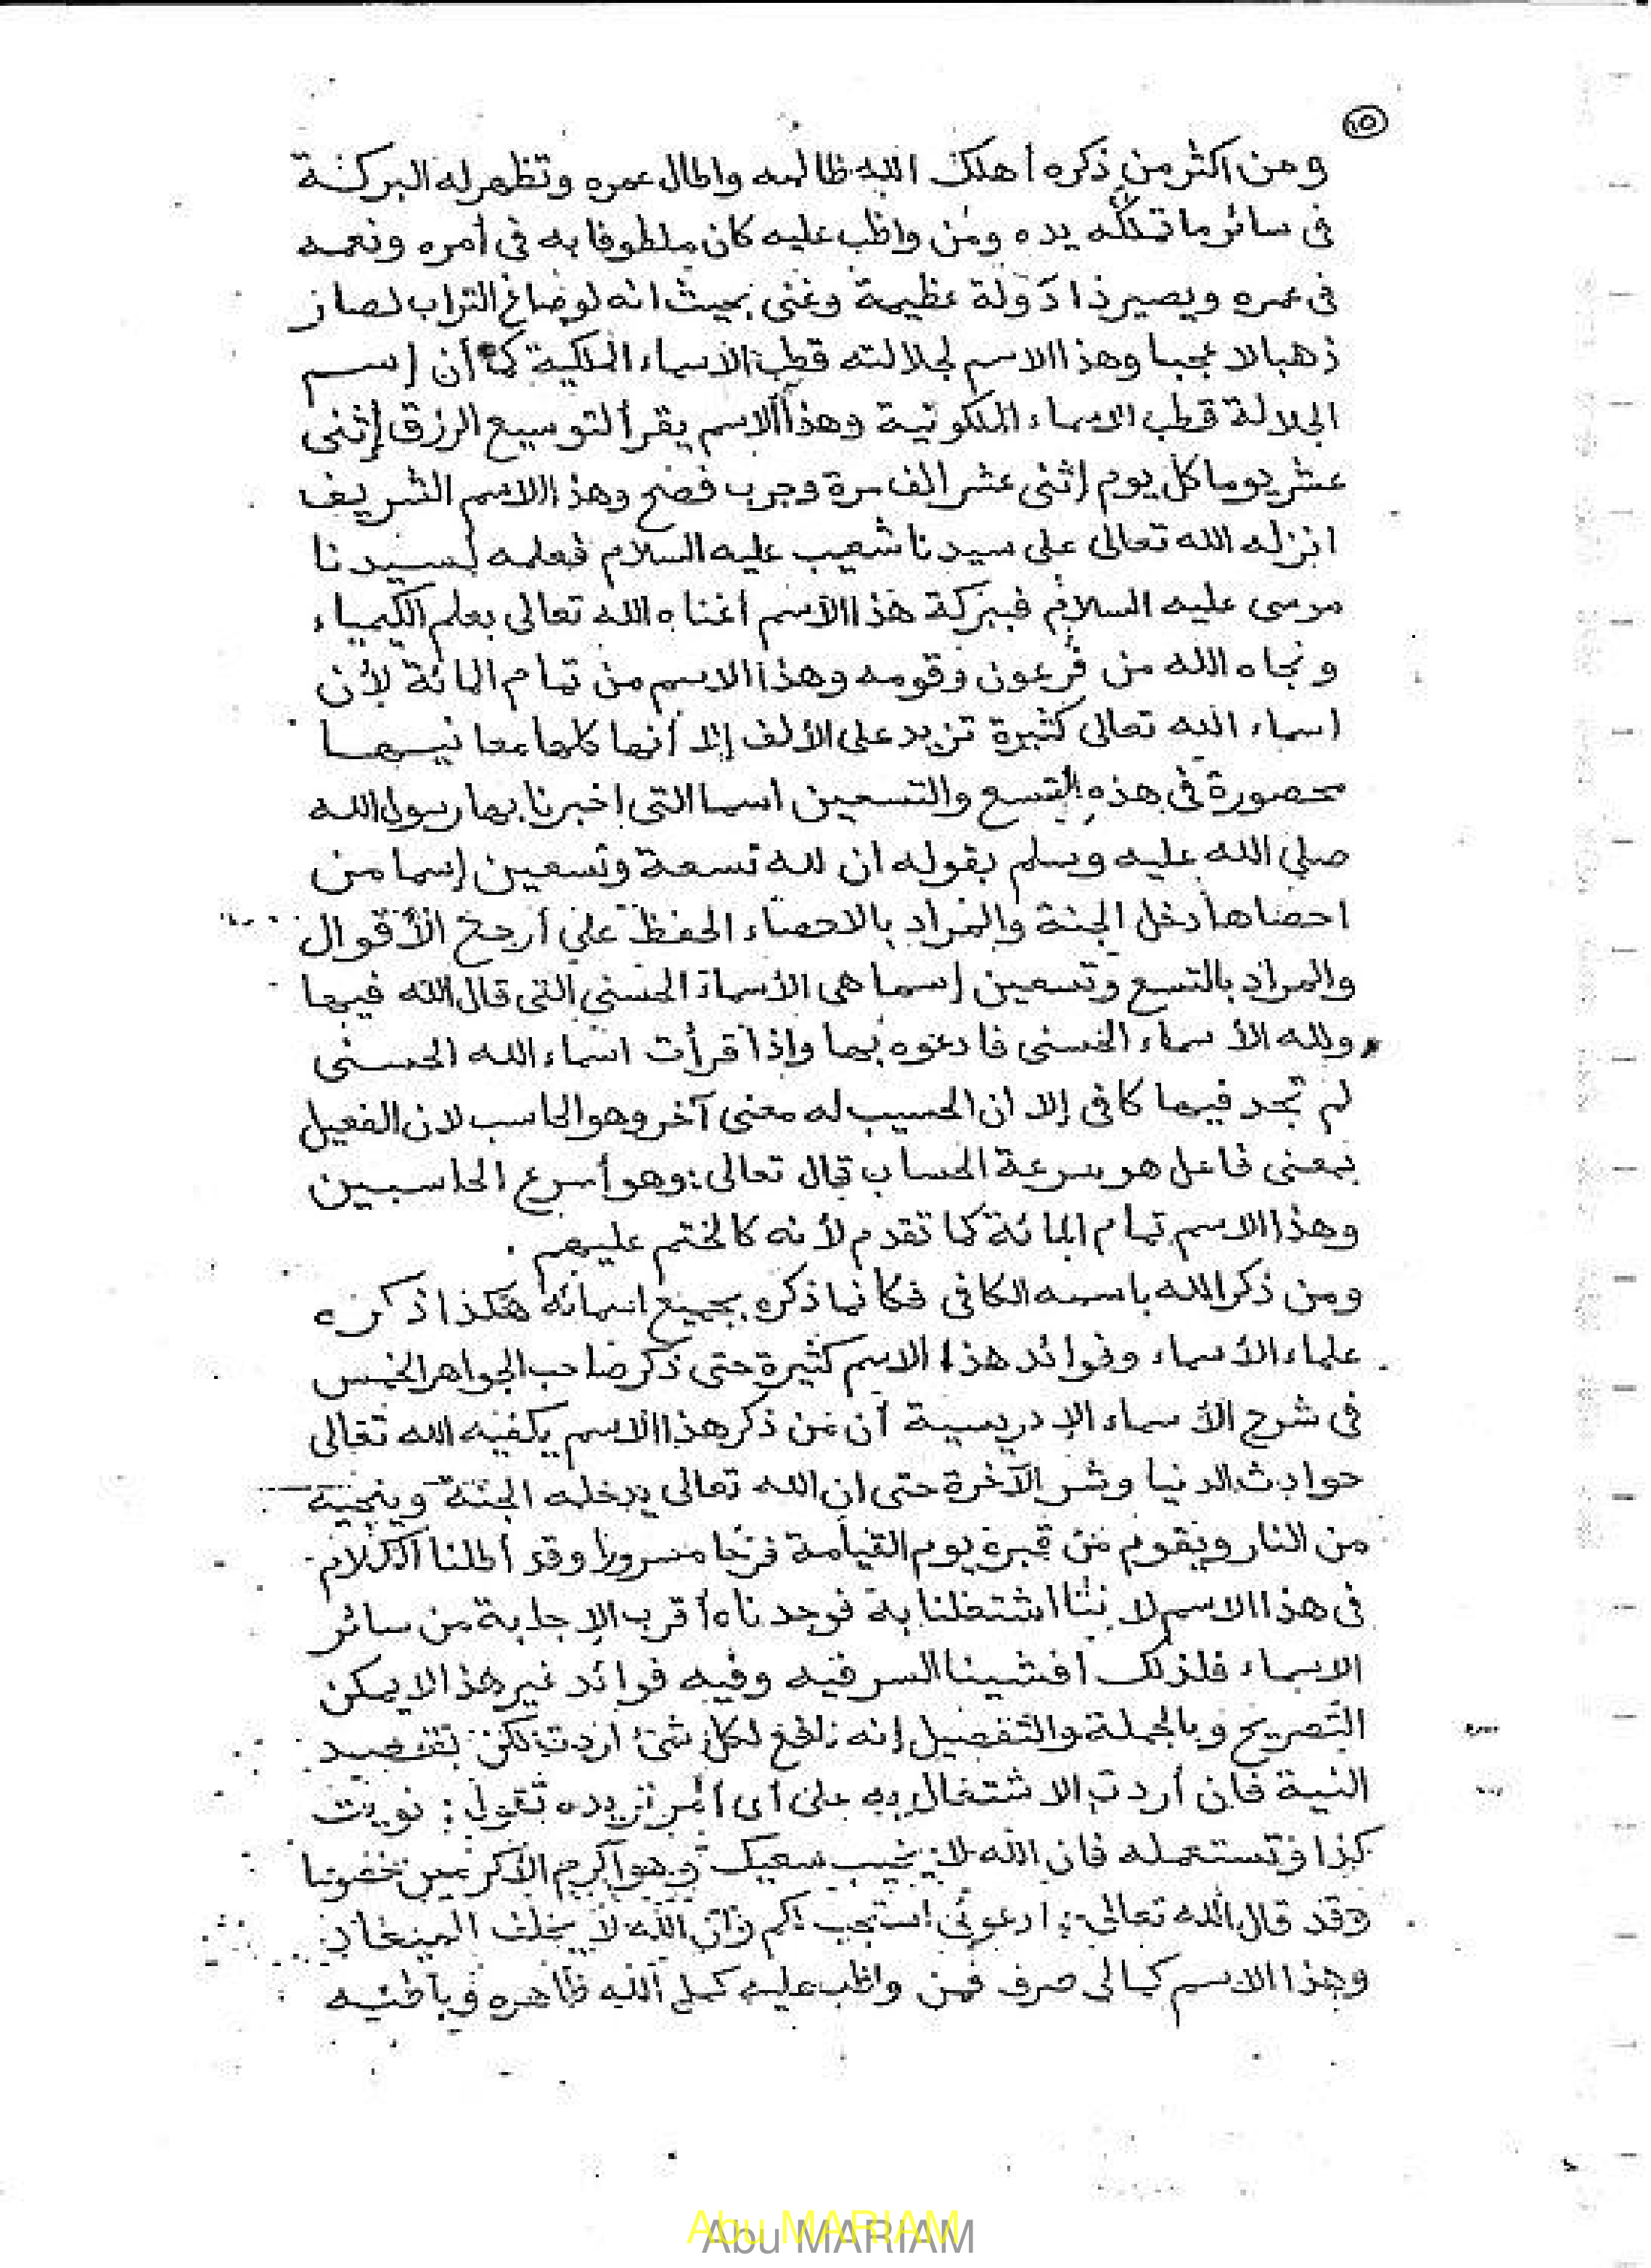 ١٥
ومن اكثر من ذكره أهلك الله ظالمه واطال عمره وتظهر له البركة
فى سائر ما تملكه يده ومن واظب عليه كان ملطوفا به فى أمره ونعمه
فى عمره ويصير ذا دَولة عظيمة وغنى بحيث انه لو صاغ التراب لصار
ذهبا لا عجبا وهذا الاسم لجلالته قطب الاسماء الملكية كما أن إسم
الجلالة قطب الاسماء الملكوتية وهذا الاسم يقرأ لتوسيع الرزق إثنى
عشر يوما كل يوم إثنى عشر الف مرة وجرب فصح وهذا الاسم الشريف
انزله الله تعالى على سيدنا شعيب عليه السلام فعلمه لسيدنا
موسى عليه السلام فببركة هذا الاسم أغناه الله تعالى بعلم الكيمياء
ونجاه الله من فرعون وقومه وهذا الاسم من تمام المائة لأن
اسماء الله تعالى كثيرة تزيد على الألف إلا أنها كلها معانيها
محصورة فى هذه التسع والتسعين اسما التى اخبرنا بها رسول الله
صلى الله عليه وسلم بقوله ان لله تسعة وتسعين إسما من
احصاها دخل الجنة والمراد بالاحصاء الحفظ على أرجح الأقوال
والمراد بالتسع وتسعين إسما هى الأسماء الحسنى التى قال الله فيها
ولله الأسماء الحسنى فادعوه بها وإذا قرأت اسماء الله الحسنى
لم تجد فيها كافى إلا ان الحسيب له معنى آخر وهو الحاسب لان الفعيل
بمعنى فاعل هو سرعة الحساب قال تعالى: وهو أسرع الحاسبين
وهذا الاسم تمام المائة كما تقدم لأنه كالختم عليهم .
ومن ذكر الله باسمه الكافى فكأنما ذكره بجميع اسمائه هكذا ذكره
علماء الأسماء وفوائد هذا الاسم كثيرة حتى ذكر صاحب الجواهر الخمس
فى شرح الأسماء الإدريسية أن من ذكر هذا الاسم يكفيه الله تعالى
حوادث الدنيا وشر الآخرة حتى ان الله تعالى يدخله الجنة وينجيه
من النار ويقوم من قبره يوم القيامة فرحا مسرورا وقد أطلنا الكلام
فى هذا الاسم لاننا اشتغلنا به فوجدناه أقرب الإجابة من سائر
الاسماء فلذلك افشينا السر فيه وفيه فوائد غير هذا لا يمكن
التصريح وبالجملة والتفصيل إنه نافع لكل شئ اردت لكن بتقييد
النية فان أردت الاشتغال به على أى أمر تريده تقول: نويت
كذا وتستعمله فان الله لا يخيب سعيك وهو أكرم الأكرمين خصوصا
وقد قال الله تعالى: ادعونى استجب لكم وان الله لا يخلف الميعاد
وهذا الاسم كمالى صرف فمن واظب عليه كمل الله ظاهره وباطنه
Abu MARIAM